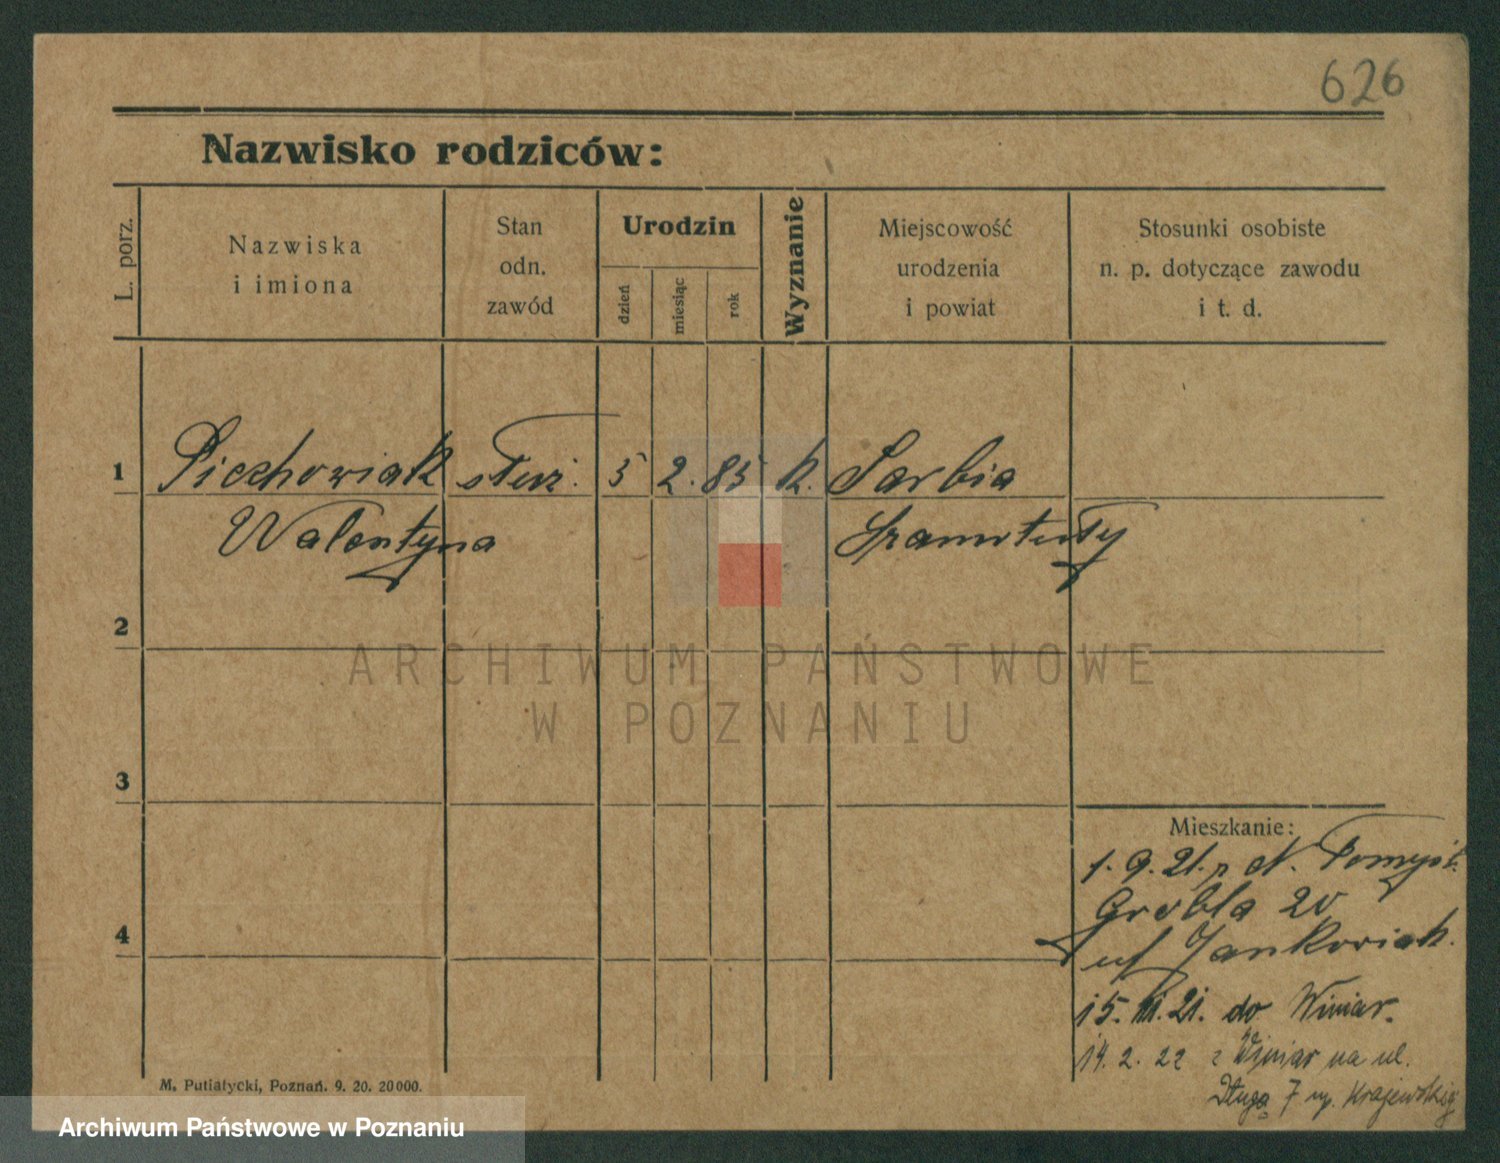 626
Nazwisko rodziców:
L. porz.
Nazwiska
i imiona
Stan
odn.
zawód
Urodzin
dzień
miesiąc
rok
Wyznanie
Miejscowość
urodzenia
i powiat
Stosunki osobiste
n. p. dotyczące zawodu
i t. d.
1 Piechowiak służ. 5 2. 85 k. Sarbia
Walentyna Szamotuły
2
ARCHIWUM PAŃSTWOWE
W POZNANIU
3
Mieszkanie:
1. 9. 21. z N. Tomyśl.
Grobla 20
4
uf Jankowiak.
15. 11. 21. do Winiar.
14. 2. 22 z Winiar na ul.
Długą 7 Krajewskiej
M. Putiatycki, Poznań. 9. 20. 20000.
Archiwum Państwowe w Poznaniu